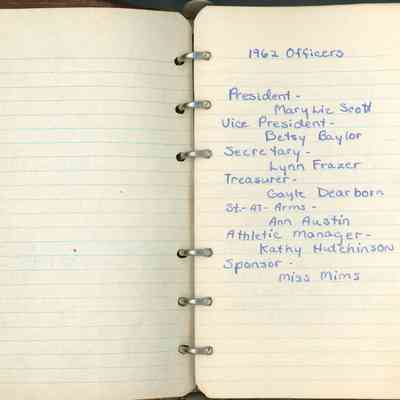 1962 Officers
President -
Mary Liz Scott
Vice President -
Betsy Baylor
Secretary -
Lynn Frazer
Treasurer -
Gayle Dearborn
St.-At-Arms -
Ann Austin
Athletic Manager -
Kathy Hutchinson
Sponsor -
Miss Mims